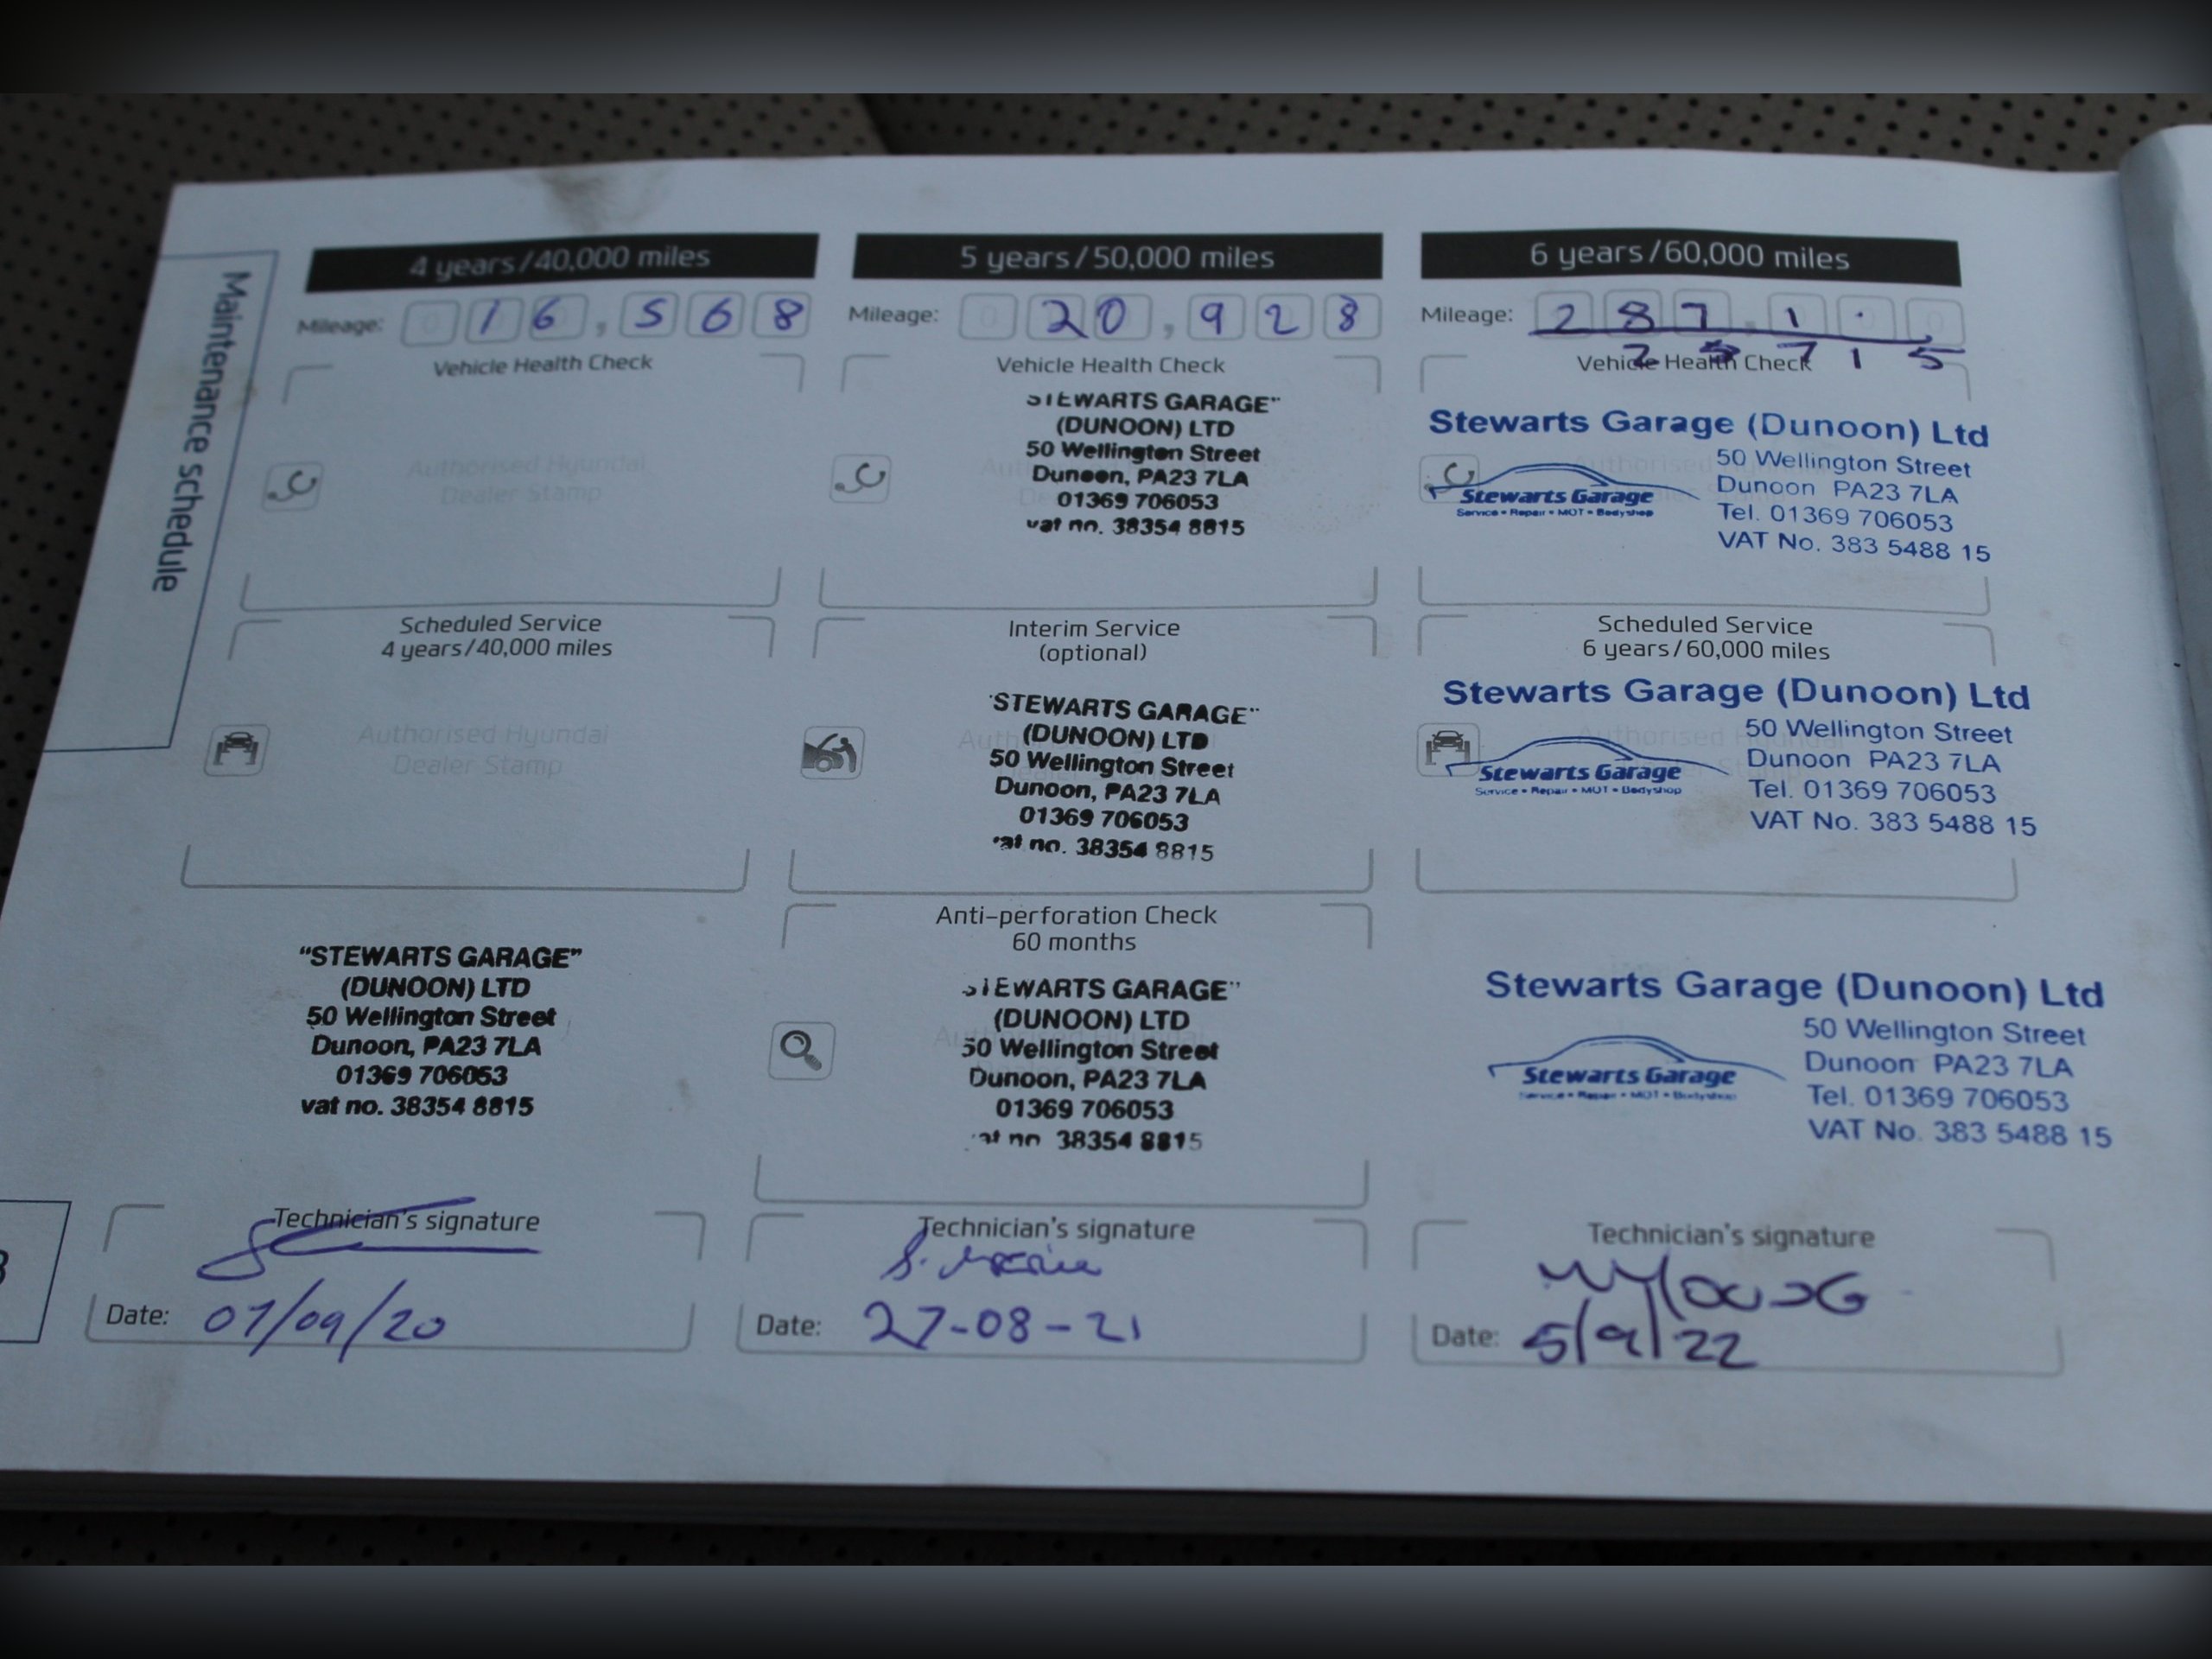 Maintenance schedule
4 years/40,000 miles
Mileage: 16,568
Vehicle Health Check
Authorised Hyundai
Dealer Stamp
Scheduled Service
4 years/40,000 miles
Authorised Hyundai
Dealer Stamp
"STEWARTS GARAGE"
(DUNOON) LTD
50 Wellington Street
Dunoon, PA23 7LA
01369 706053
vat no. 38354 8815
Technician's signature
Date: 07/09/20
5 years/50,000 miles
Mileage: 20,928
Vehicle Health Check
STEWARTS GARAGE"
(DUNOON) LTD
50 Wellington Street
Dunoon, PA23 7LA
01369 706053
vat no. 38354 8815
Interim Service
(optional)
"STEWARTS GARAGE"
(DUNOON) LTD
50 Wellington Street
Dunoon, PA23 7LA
01369 706053
vat no. 38354 8815
Anti-perforation Check
60 months
STEWARTS GARAGE"
(DUNOON) LTD
50 Wellington Street
Dunoon, PA23 7LA
01369 706053
vat no 38354 8815
Technician's signature
Date: 27-08-21
6 years/60,000 miles
Mileage: 287,1
Vehicle Health Check
Stewarts Garage (Dunoon) Ltd
50 Wellington Street
Dunoon PA23 7LA
Tel. 01369 706053
VAT No. 383 5488 15
Stewarts Garage
Service • Repair • MOT • Bodyshop
Scheduled Service
6 years/60,000 miles
Stewarts Garage (Dunoon) Ltd
50 Wellington Street
Dunoon PA23 7LA
Tel. 01369 706053
VAT No. 383 5488 15
Stewarts Garage
Service • Repair • MOT • Bodyshop
Stewarts Garage (Dunoon) Ltd
50 Wellington Street
Dunoon PA23 7LA
Tel. 01369 706053
VAT No. 383 5488 15
Stewarts Garage
Service • Repair • MOT • Bodyshop
Technician's signature
Date: 5/9/22